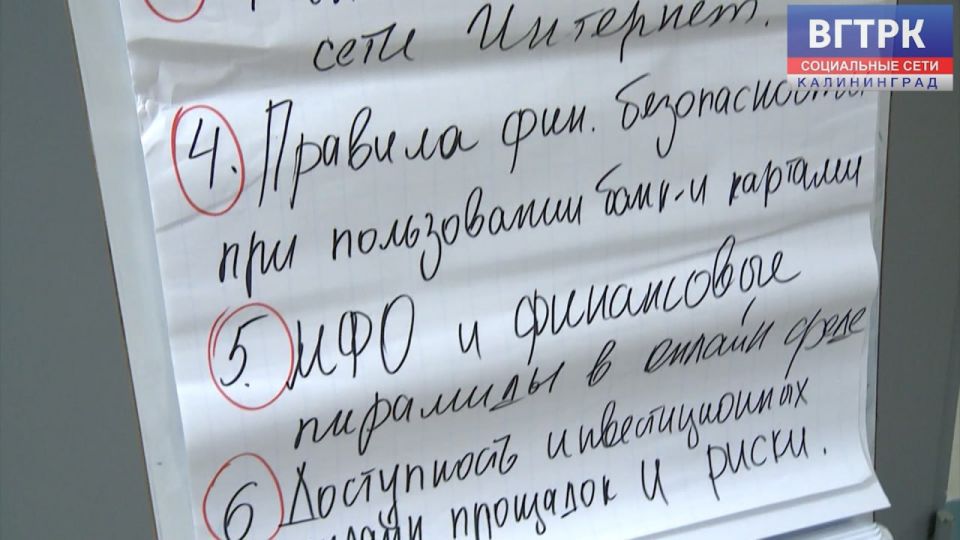 сети Интернет.
4. Правила фин. безопасности
при пользовании банк-и картами
5. МФО и финансовые
пирамиды в онлайн среде
6 Доступность инвестиционных
онлайн прощадок и риски.
ВГТРК
СОЦИАЛЬНЫЕ СЕТИ
КАЛИНИНГРАД